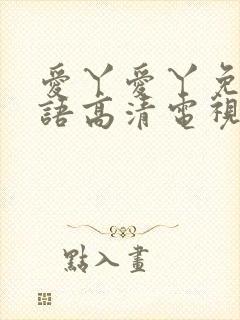 愛丫愛丫免
語高清電視
點入畫